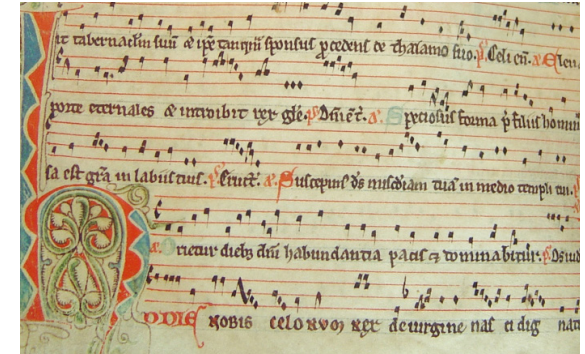 it tabernaclm suu & ipe tanqm sponsus pcedens de thalamo suo. ps. Celi en. a. Eleua
porte eternales & introibit rex gle. ps. Dni et. a. Speciosus forma p filiis hominu
sa est gra in labiis tuis. ps. Eruct. a. Suscepim ds miscdiam tua in medio templi tui. ps.
a. Orietur dieb dni habundantia pacis et dominabitur. ps. Ds iud
ODIE NOBIS CELORVM REX de uirgine nas ci dig nat